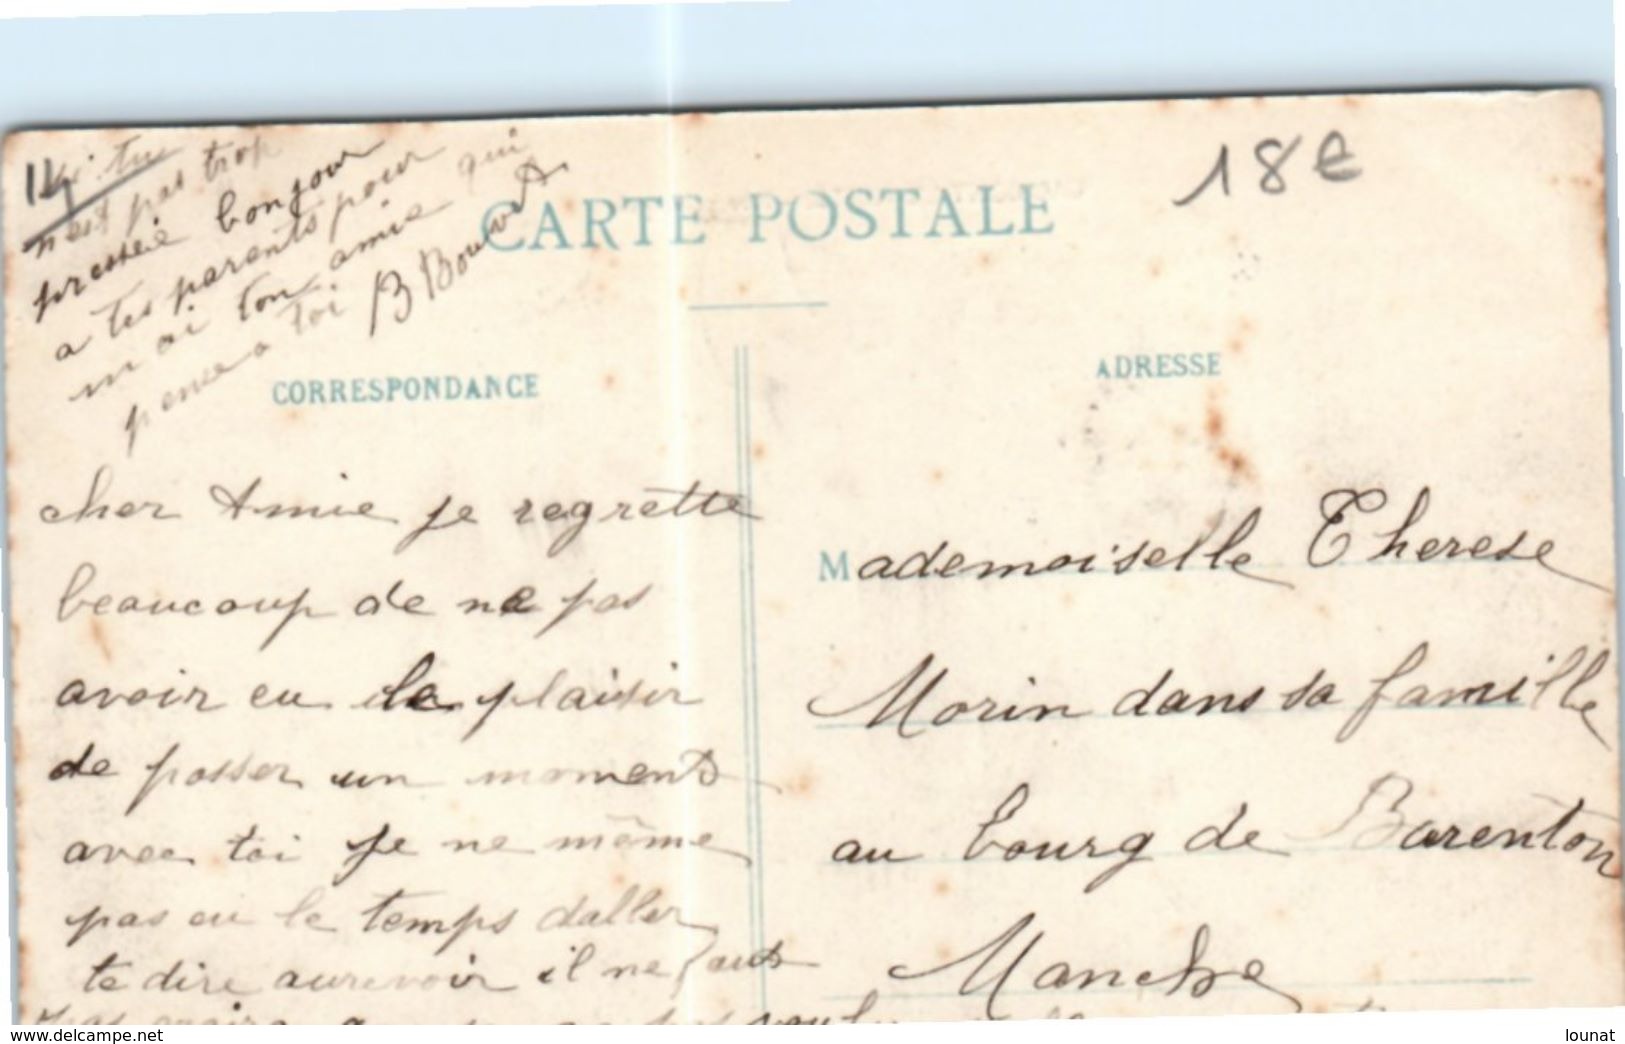 si tu
n'est pas trop
pressée bonjour
a tes parents pour
moi ton amie qui
pense a toi B Bouvet
14
18€
CARTE POSTALE
CORRESPONDANCE
ADRESSE
cher Amie je regrette
beaucoup de ne pas
avoir eu le plaisir
de passer un moments
avec toi je ne même
pas eu le temps daller
te dire aurevoir il ne faut
pas croire
Mademoiselle Therese
Morin dans sa famille
au bourg de Barenton
Manche
www.delcampe.net
lounat